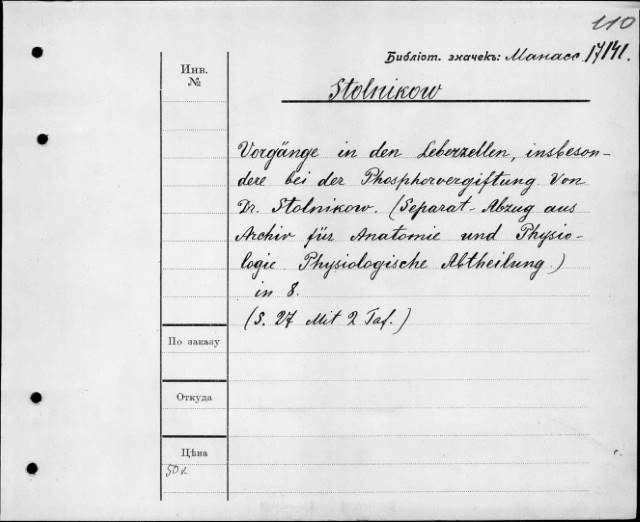 110
Библіот. значекъ: Манасс 17/141.
Инв.
№
Stolnikow
Vorgänge in den Leberzellen, insbeson-
dere bei der Phosphorvergiftung Von
Dr. Stolnikow. (Separat-Abzug aus
Archiv für Anatomie und Physio-
logie. Physiologische Abtheilung.)
in 8.
(S. 27 Mit 2 Taf.)
По заказу
Откуда
Цѣна
50 к.